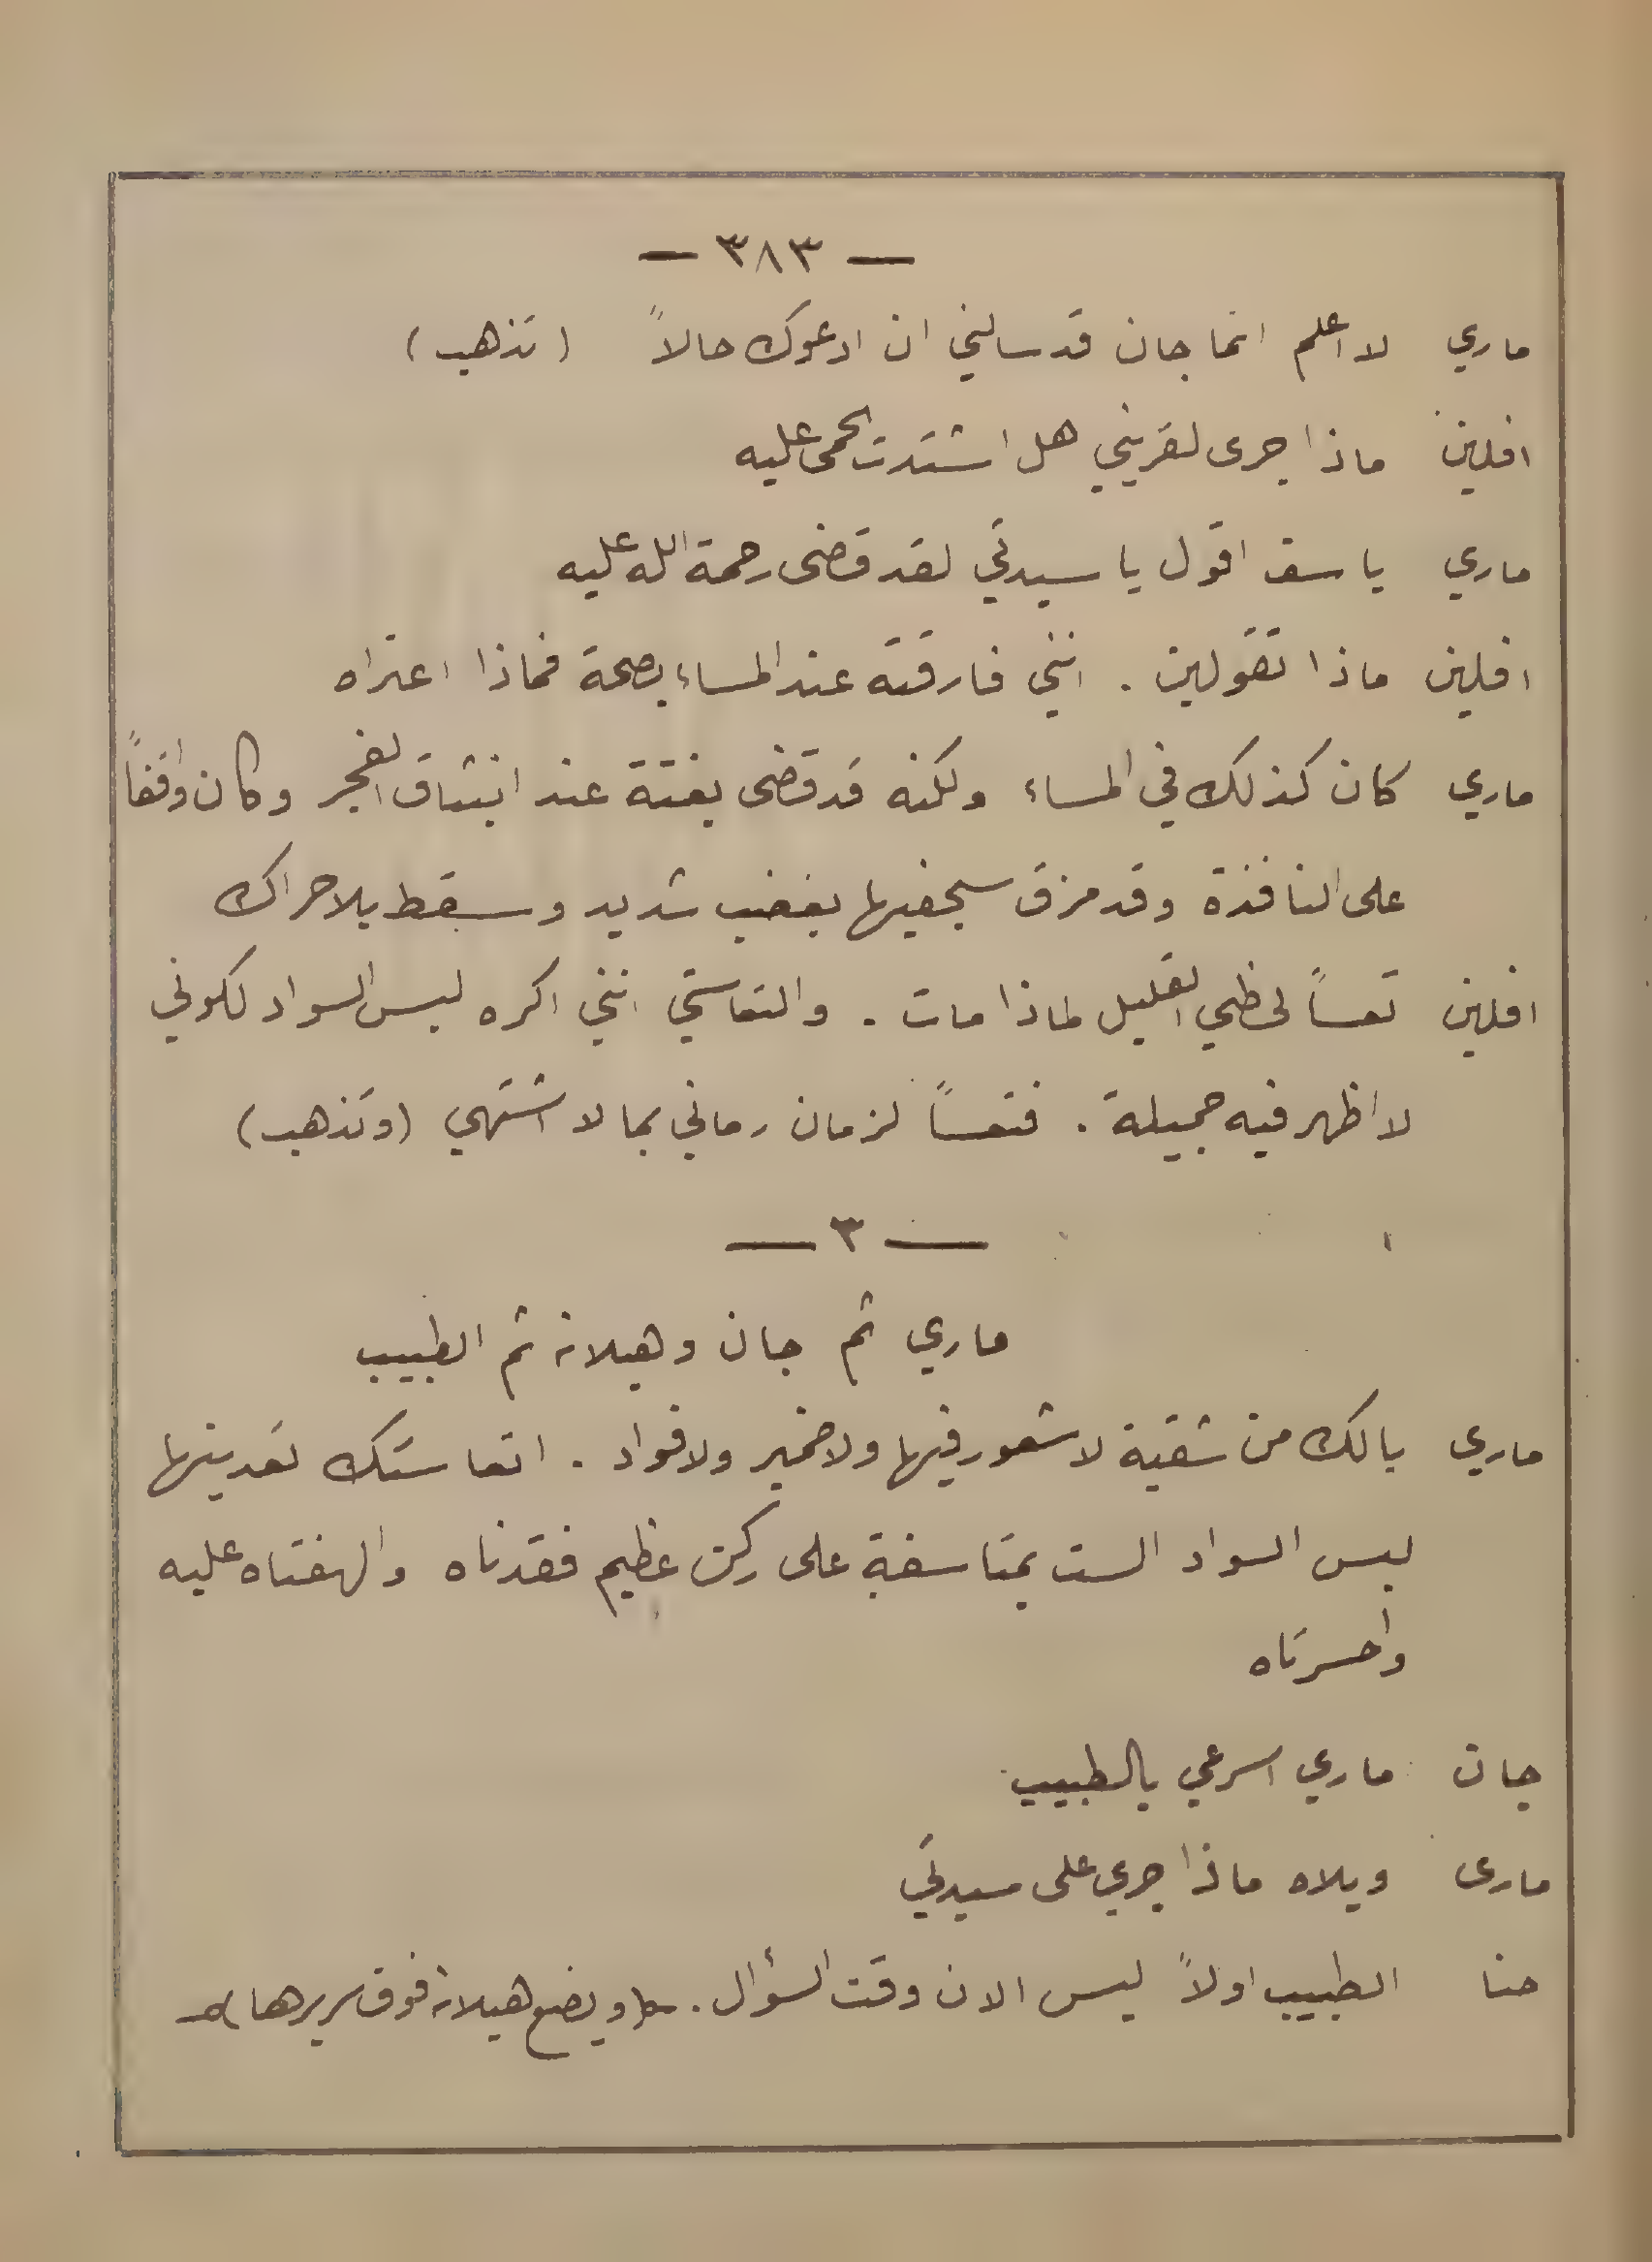 — ٣٨٣ —
ماري لا اعلم انما جان قد سالني ان ادعوك حالاً (تذهب)
افلين ماذا جرى لقريني هل اشتدت الحمى عليه
ماري ياسف اقول يا سيدتي لقد قضى رحمة الله عليه
افلين ماذا تقولين . انني فارقته عند المساء بصحة فماذا اعتراه
ماري كان كذلك في المساء ولكنه قد قضى بغتة عند انبثاق الفجر وكان واقفاً
على النافذة وقد مزق سجفيها بغضب شديد وسقط بلا حراك
افلين تعساً لحظي القليل لماذا مات . والتعاستي انني اكره لبس السواد لكوني
لا اظهر فيه جميلة . فتعساً لزمان رماني بما لا اشتهي (وتذهب)
— ٣ —
ماري ثم جان وهيلانه ثم الطبيب
ماري يالك من شقية لا شعور فيها ولا ضمير ولا فواد . اتعاستك تعدينها
لبس السواد الست بمتاسفة على ركن عظيم فقدناه والهفتاه عليه
واحسرتاه
جان ماري اسرعي بالطبيب
ماري ويلاه ماذا جرى على سيدتي
حنا الطبيب اولاً ليس الان وقت السؤال . (ويضع هيلانه فوق سريرها)